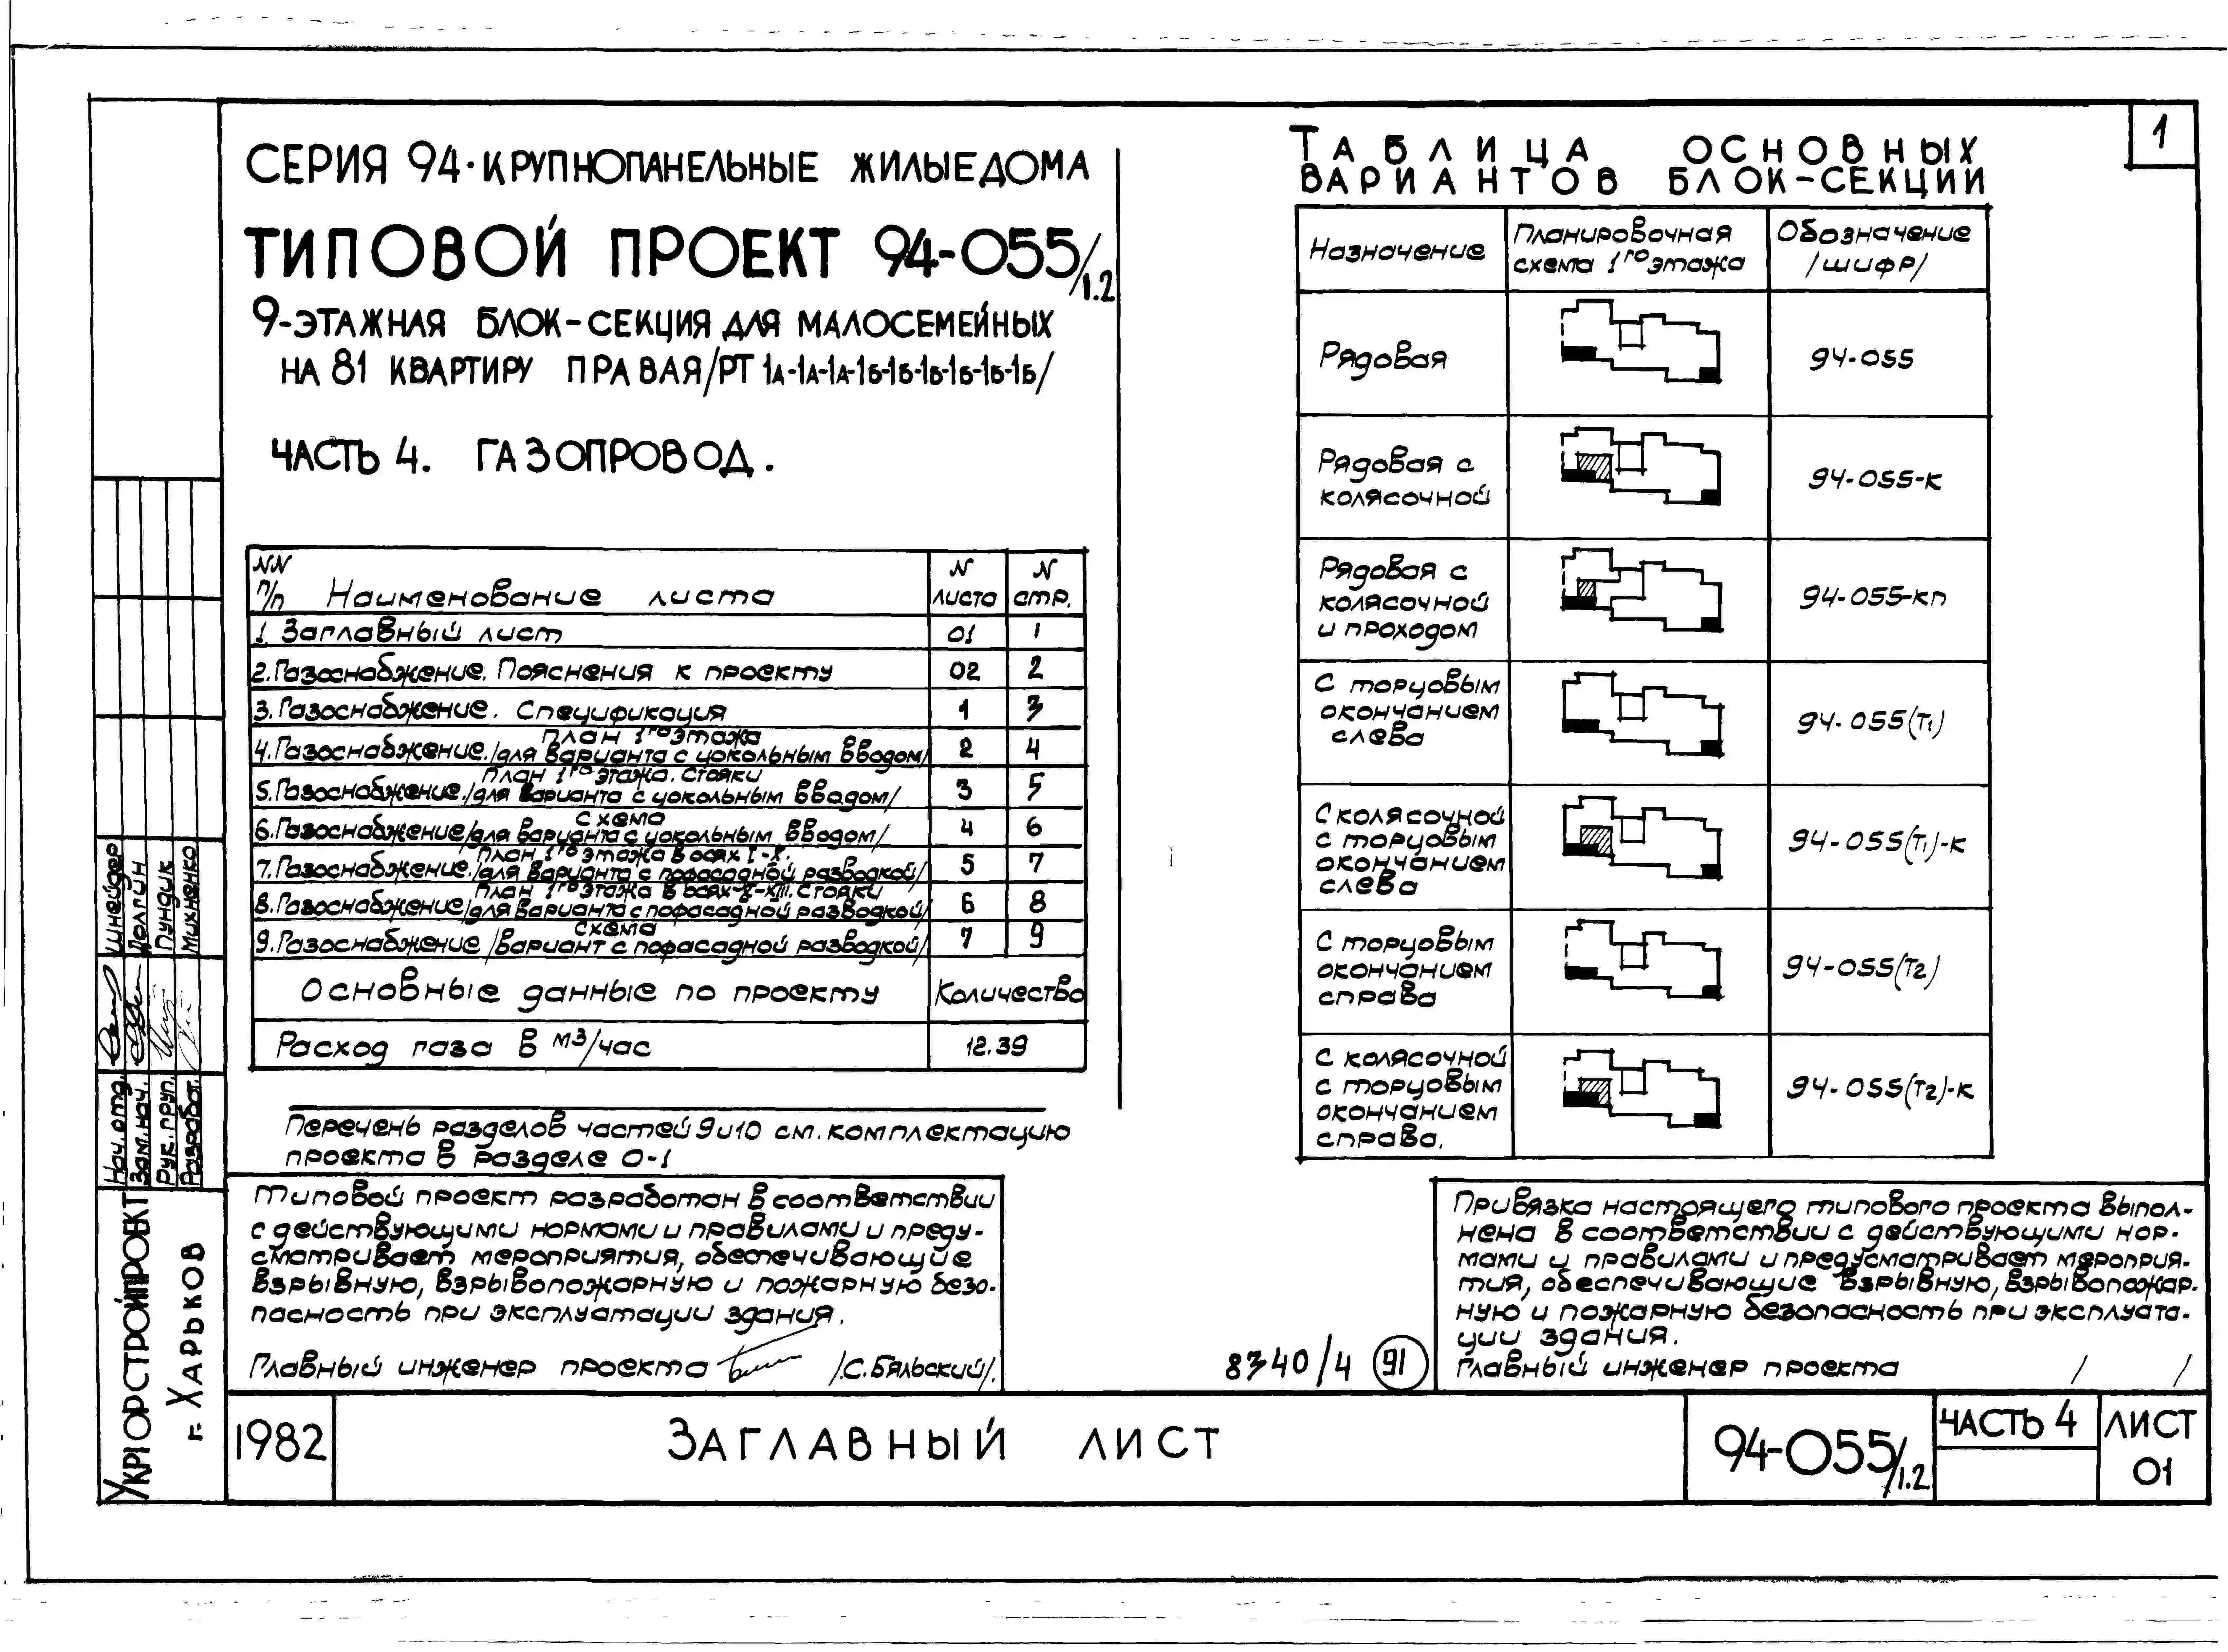 1
СЕРИЯ 94·КРУПНОПАНЕЛЬНЫЕ ЖИЛЫЕ ДОМА
ТИПОВОЙ ПРОЕКТ 94-055/1.2
9-ЭТАЖНАЯ БЛОК-СЕКЦИЯ ДЛЯ МАЛОСЕМЕЙНЫХ
НА 81 КВАРТИРУ ПРАВАЯ/РТ 1А-1А-1А-1Б-1Б-1Б-1Б-1Б-1Б/
ЧАСТЬ 4. ГАЗОПРОВОД.
NN п/п Наименование листа N листа N стр.
1. Заглавный лист 01 1
2. Газоснабжение. Пояснения к проекту 02 2
3. Газоснабжение. Спецификация 1 3
План 1го этажа
4. Газоснабжение. /для варианта с цокольным вводом/ 2 4
План 1го этажа. Стояки
5. Газоснабжение. /для варианта с цокольным вводом/ 3 5
Схема
6. Газоснабжение /для варианта с цокольным вводом/ 4 6
План 1го этажа в осях I-X.
7. Газоснабжение. /для варианта с пофасадной разводкой/ 5 7
План 1го этажа в осях X-XIII. Стояки
8. Газоснабжение /для варианта с пофасадной разводкой/ 6 8
Схема
9. Газоснабжение /вариант с пофасадной разводкой/ 7 9
Основные данные по проекту Количество
Расход газа в м3/час 12.39
Перечень разделов частей 9 и 10 см. комплектацию
проекта в разделе 0-1
Типовой проект разработан в соответствии
с действующими нормами и правилами и преду-
сматривает мероприятия, обеспечивающие
взрывную, взрывопожарную и пожарную безо-
пасность при эксплуатации здания.
Главный инженер проекта /С. Бяльский/.
ТАБЛИЦА ОСНОВНЫХ
ВАРИАНТОВ БЛОК-СЕКЦИИ
Назначение Планировочная схема 1го этажа Обозначение /шифр/
Рядовая 94-055
Рядовая с
колясочной 94-055-к
Рядовая с
колясочной
и проходом 94-055-кп
С торцовым
окончанием
слева 94-055(Т1)
С колясочной
с торцовым
окончанием
слева 94-055(Т1)-к
С торцовым
окончанием
справа 94-055(Т2)
С колясочной
с торцовым
окончанием
справа. 94-055(Т2)-к
Привязка настоящего типового проекта выпол-
нена в соответствии с действующими нор-
мами и правилами и предусматривает мероприя-
тия, обеспечивающие взрывную, взрывопожар-
ную и пожарную безопасность при эксплуата-
ции здания.
Главный инженер проекта / /
8340/4 91
Нач. отд. Шнейдер
Зам. нач. Долгин
Рук. груп. Пундик
Разработ. Михненко
УКРГОРСТРОЙПРОЕКТ
г. ХАРЬКОВ
1982
ЗАГЛАВНЫЙ ЛИСТ
94-055/1.2
ЧАСТЬ 4
ЛИСТ
01